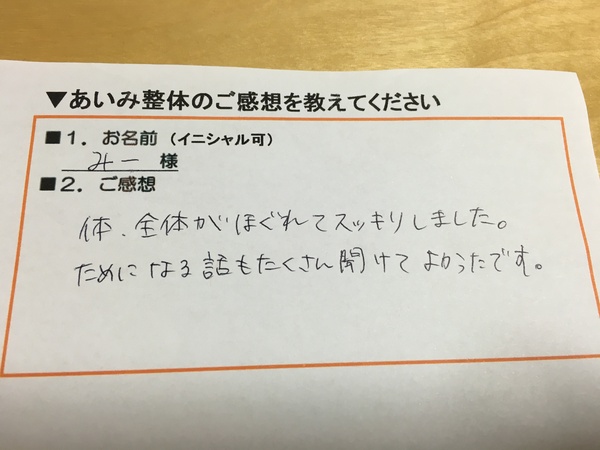 ▼あいみ整体のご感想を教えてください
■1. お名前（イニシャル可）
みー 様
■2. ご感想
体、全体がほぐれてスッキリしました。
ためになる話もたくさん聞けてよかったです。